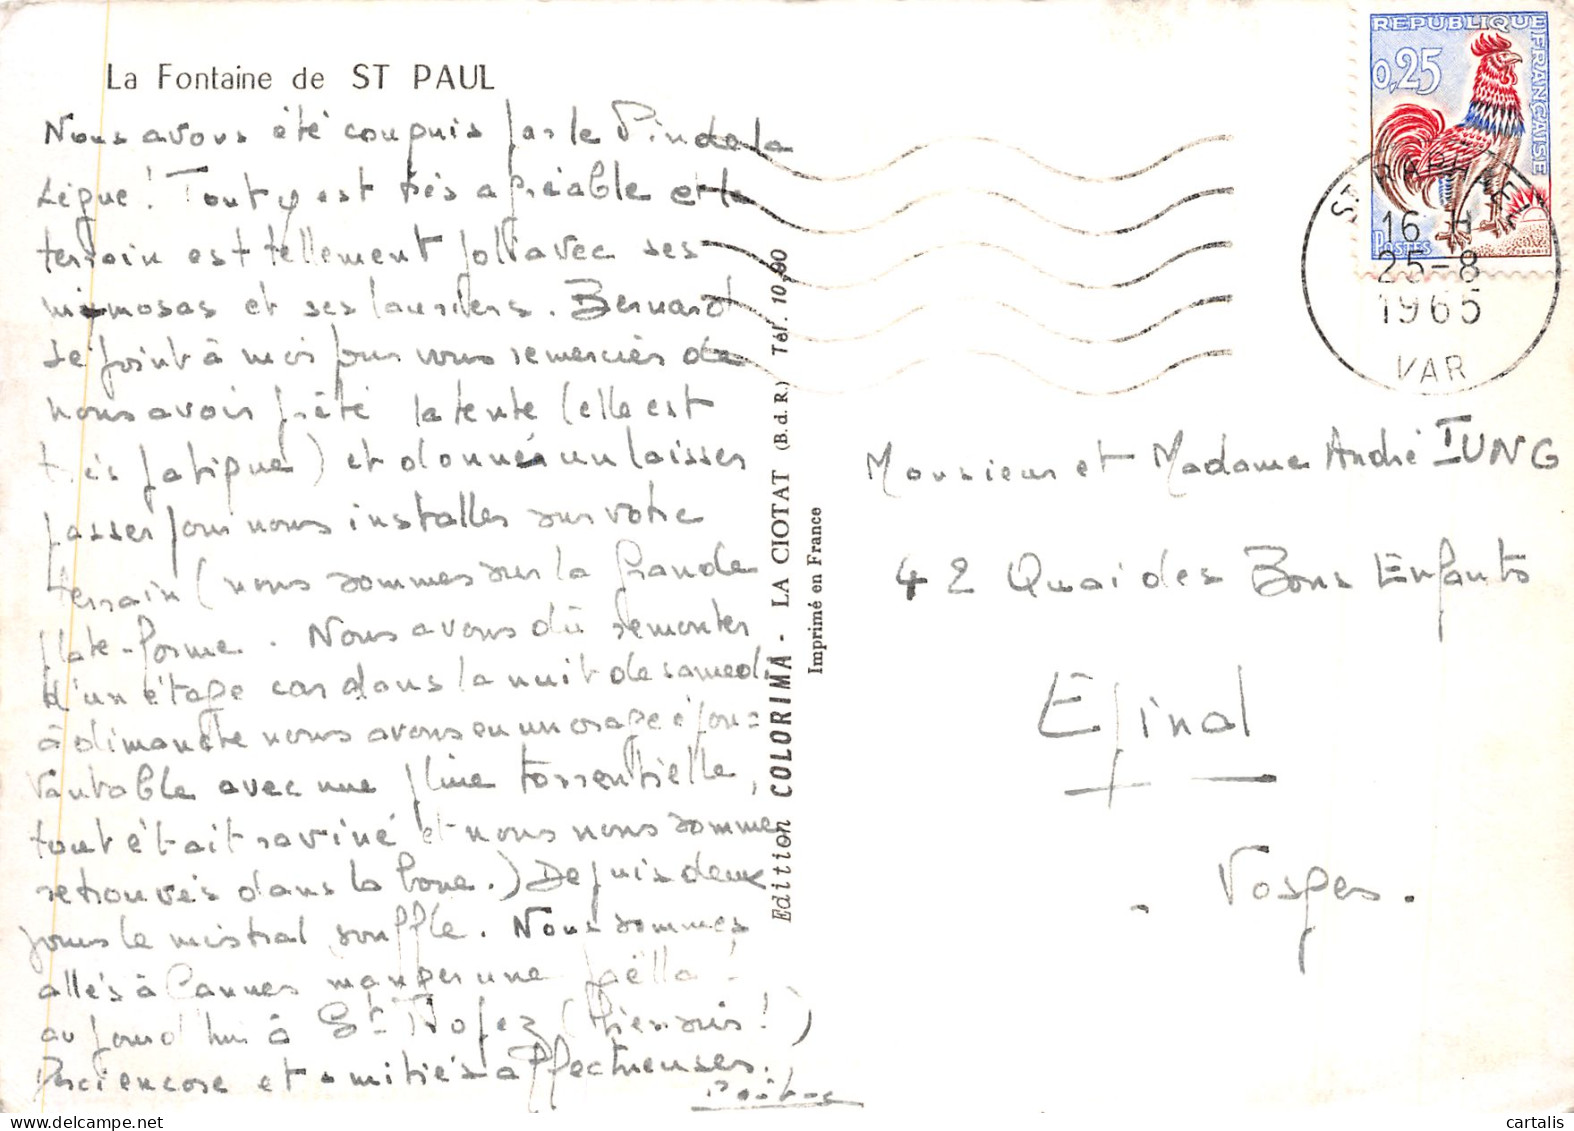 La Fontaine de ST PAUL
Nous avons été conquis par le Pin de la
Ligue ! Tout y est très agréable et le
terrain est tellement joli avec ses
mimosas et ses lauriers. Bernard
se joint à moi pour vous remercier de
nous avoir prêté la tente (elle est
très fatiguée) et donné un laisser
passer pour nous installer sur votre
terrain (nous sommes sur la grande
plate-forme. Nous avons dû remonter
d'un étage car dans la nuit de samedi
à dimanche nous avons eu un orage épou=
vantable avec une pluie torrentielle,
tout était raviné et nous nous sommes
retrouvés dans la boue.) Depuis deux
jours le mistral souffle. Nous sommes
allés à Cannes manger une paëlla
aujourd'hui à St Tropez
encore et amitiés affectueuses.
Edition COLORIMA - LA CIOTAT (B.d.R.) Tél. 10,90
Imprimé en France
REPUBLIQUE FRANÇAISE
0,25
POSTES
DECARIS
ST RAPHAEL
16 H
25-8
1965
VAR
Monsieur et Madame André IUNG
42 Quai des Bons Enfants
Epinal
- Vosges.
cartalis
delcampe.net